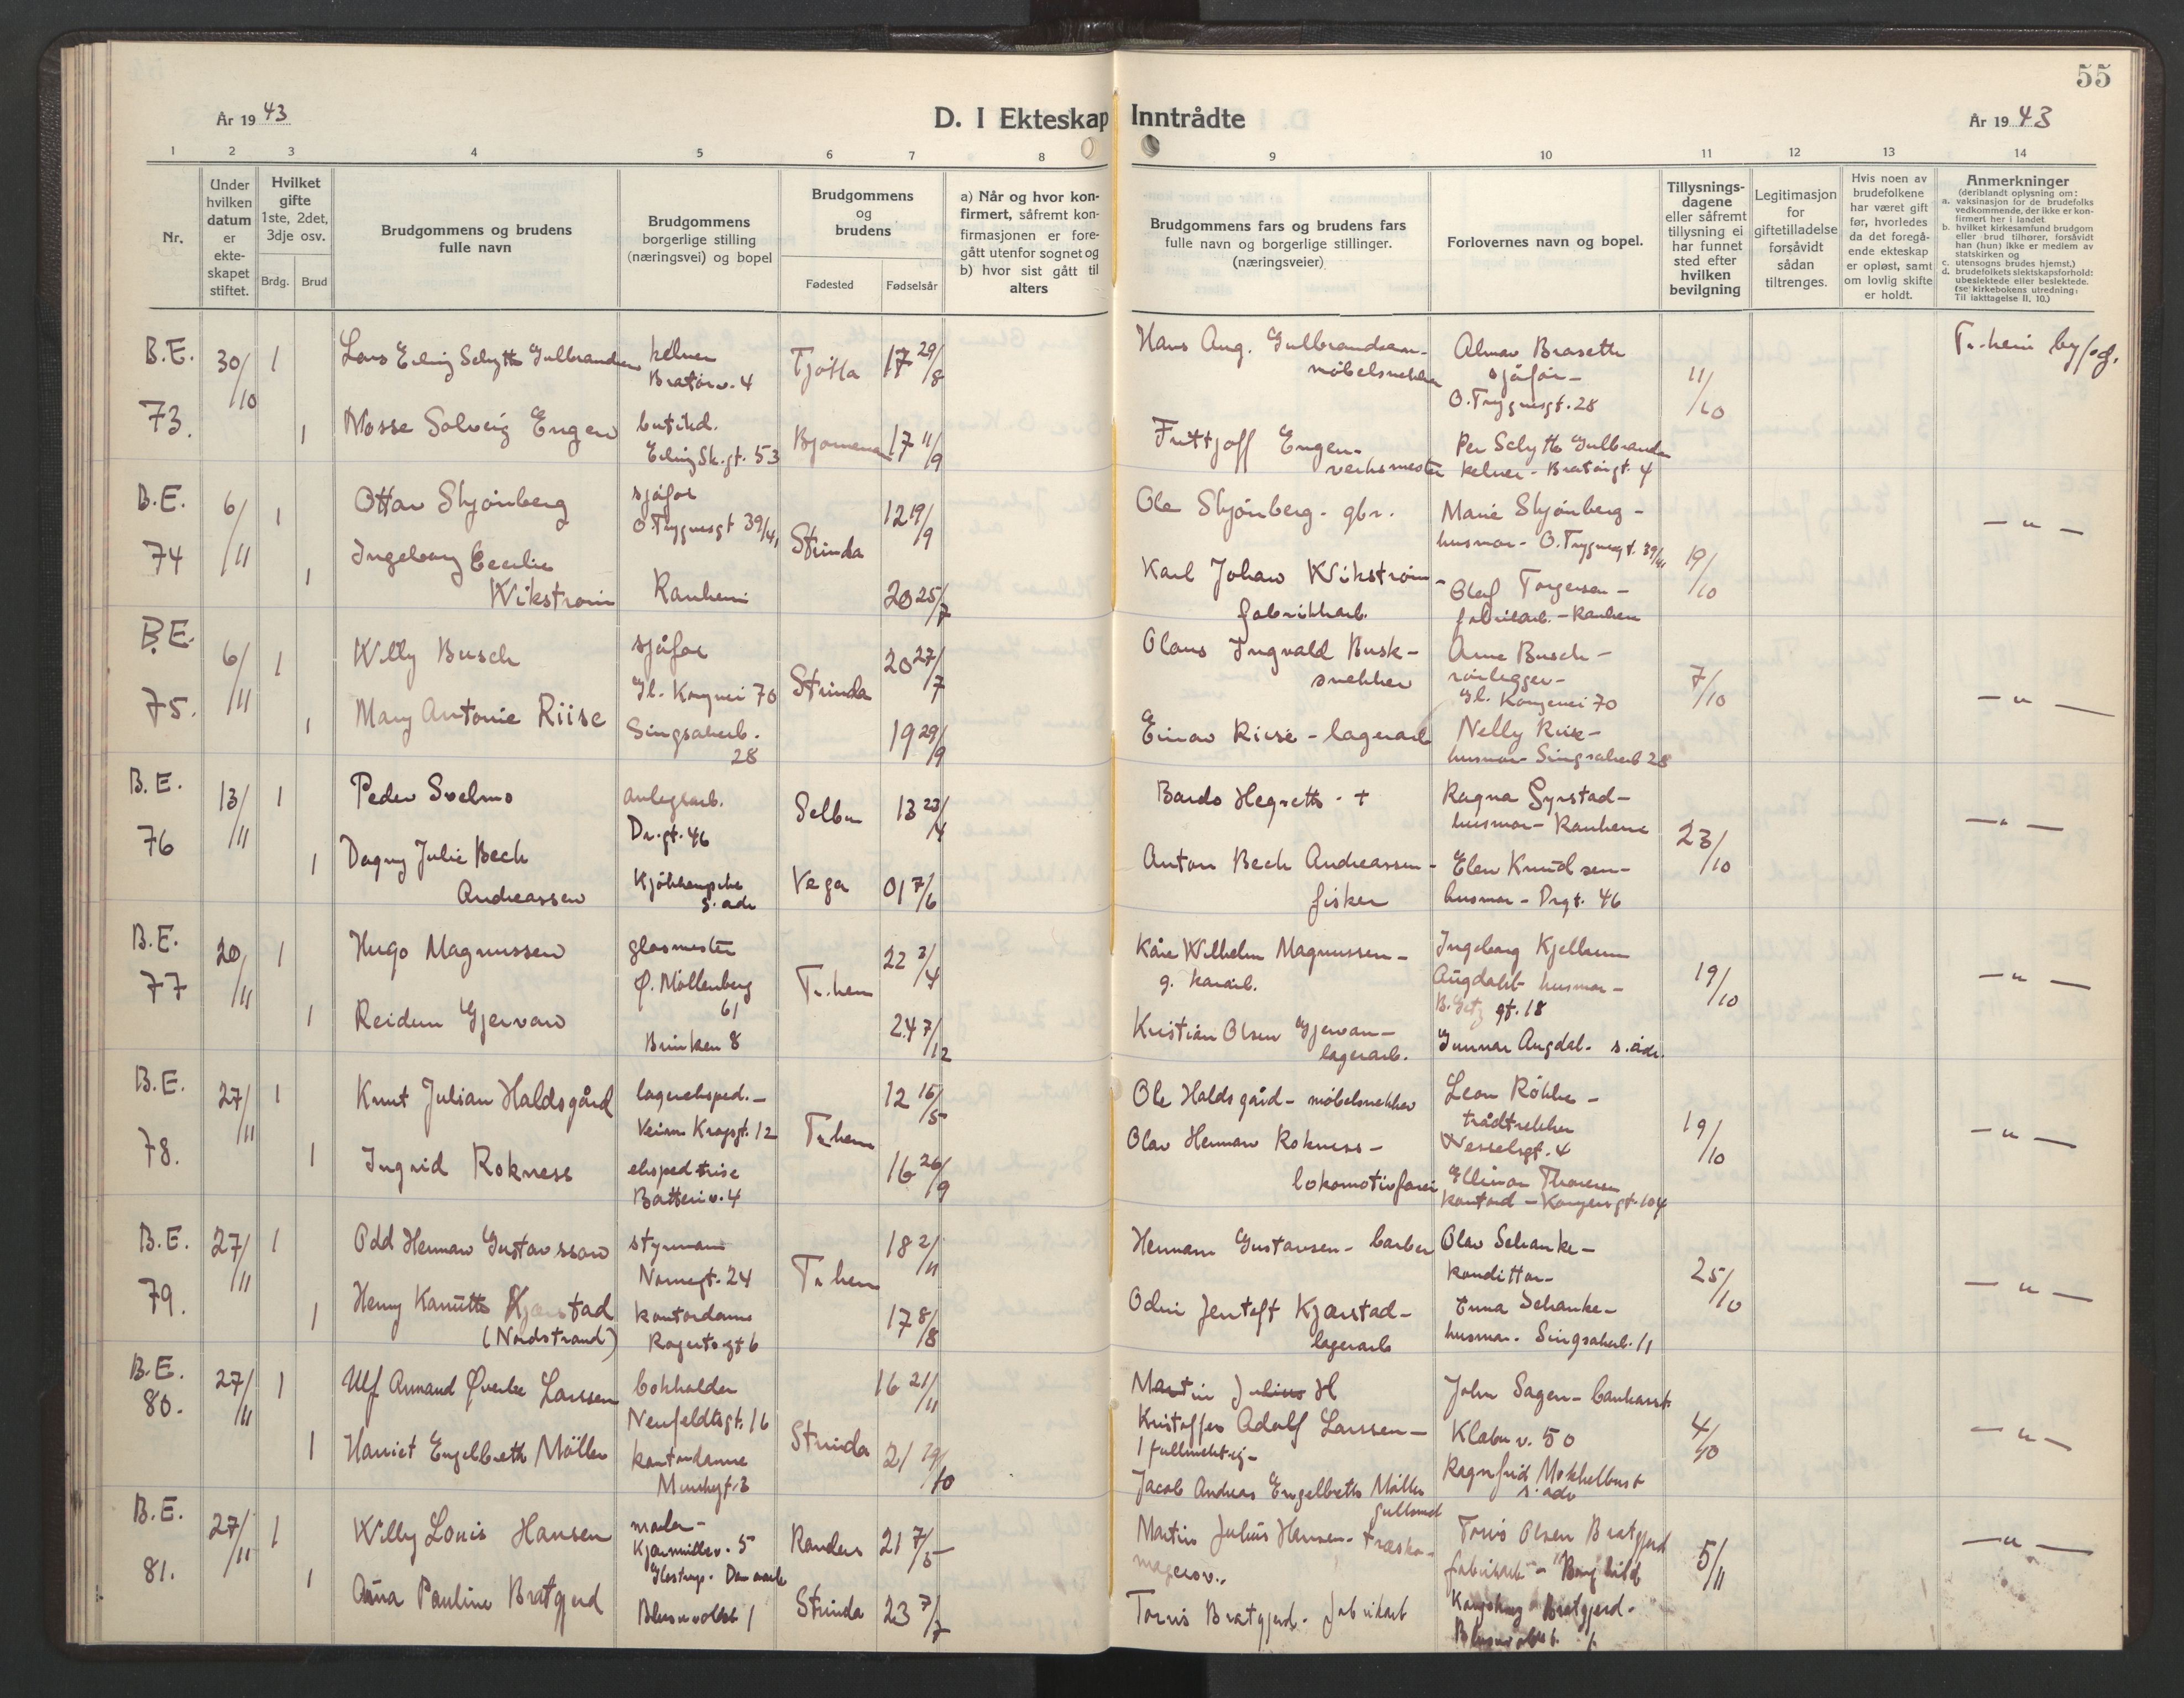 55
År 19 43
D. I Ekteskap Inntrådte
År 19 43
1 2 3 4 5 6 7 8 9 10 11 12 13 14
Nr.
Under hvilken datum er ekteskapet stiftet.
Hvilket gifte 1ste, 2det, 3dje osv.
Brdg. Brud
Brudgommens og brudens fulle navn
Brudgommens borgerlige stilling (næringsvei) og bopel
Brudgommens og brudens
Fødested Fødselsår
a) Når og hvor konfirmert, såfremt konfirmasjonen er foregått utenfor sognet og b) hvor sist gått til alters
Brudgommens fars og brudens fars fulle navn og borgerlige stillinger. (næringsveier)
Forlovernes navn og bopel.
Tillysningsdagene eller såfremt tillysning ei har funnet sted efter hvilken bevilgning
Legitimasjon for giftetilladelse forsåvidt sådan tiltrenges.
Hvis noen av brudefolkene har været gift før, hvorledes da det foregående ekteskap er opløst, samt om lovlig skifte er holdt.
Anmerkninger
(deriblandt oplysning om:
a. vaksinasjon for de brudefolks vedkommende, der ikke er konfirmert her i landet
b. hvilket kirkesamfund brudgom eller brud tilhører, forsåvidt han (hun) ikke er medlem av statskirken og
c. utensogns brudes hjemst.)
d. brudefolkets slektskapsforhold: ubeslektede eller beslektede.
(se kirkebokens utredning: Til iakttagelse II, 10.)
B.E. 30/10 1 Lars Erling Schytte Gulbrandsen kelner Tjøtta 17 29/8 Hans Aug. Gulbrandsen - Almar Brasetti 11/10 Tr.heim byfogd.
Bratørv. 4 møbelsnekker sjåfør -
O. Trygvesgt. 28
73. 1 Mosse Solveig Engen butikd. 17 11/9 Engen - Per Schytte Gulbrandsen
Erling Sk.gt. 53 verksmester kelner - Bratørgt. 4
B.E. 6/11 1 Ottar Skjønberg sjåfør Strinda 12 19/9 Ole Skjønberg - gbr. Marie Skjønberg - 19/10 — " —
O. Trygvesgt 39/41 husmor - O. Trygvesgt. 39/41
74 1 Ingeborg Cecilie Karl Johan Wikstrøm - Olaf Torgersen -
Wikstrøm Ranheim 20 25/7 fabrikkarb. fabrikarb. - Ranheim
B.E. 6/11 1 Willy Busch sjåfør Strinda 20 27/7 Olaus Ingvald Busk - Arne Busch - 7/10 — " —
Gl. Kongevei 70 snekker rørlegger -
Gl. Kongevei 70
75. 1 Mary Antonie Riise Singsakerb. 28 19 29/9 Einar Riise - lagerarb Nelly Riise -
husmor - Singsakerb 28
B.E. 13/11 1 Peder Svelmo anlegsarb. Selbu 13 23/4 Bardo Hegsetto - + Ragna Gyrstad - 23/10 — " —
Dr.gt. 46 husmor - Ranheim
76 1 Dagny Julie Bech Vega 01 7/6 Anton Bech Andreassen - Elen Knudsen -
Andreassen s. adr fisker husmor - Drgt. 46
B.E. 20/11 1 Hugo Magnussen glasmester Tr.hem 22 3/4 Kåre Wilhelm Magnussen - Ingeborg Kjellrun 19/10 — " —
Ø. Møllenberg 61 Augdahl - husmor -
gt. 18
77 1 Reidun Gjervan Brinken 8 24 7/12 Kristian Olsen Gjervan - Gunnar Augdal - s. adr.
lagerarb.
B.E. 27/11 1 Knut Julian Haldsgård lagereksped. - Tr.hem 12 15/5 Ole Haldsgård - møbelsnekker Leon Røkke - 19/10 — " —
12 trådtrekker
Wesselsgt. 4
78. 1 Ingrid Rokness ekspedtrise 16 26/9 Olav Herman Rokness - Ellinor Thoresen
Batteriv. 4 lokomotivfører kontord - Kongensgt. 104
B.E. 27/11 1 Odd Herman Gustavsson styrmann Tr.hem 18 2/11 Hermann Gustavsen - barber Olav Schanke - 25/10 — " —
Nornegt. 24 kondittor -
79. 1 Henny Kanutte Kjærstad kontordame 17 8/8 Odin Jentoft Kjærstad - Enna Schanke -
(Nordstrand) 6 lagerarb husmor - Singsakerb. 11
B.E. 27/11 1 Ulf Armand Øverbø Larssen bokholder Strinda 16 21/11 Martin Julius H John Sagen - bankasst 4/10 — " —
Neufeldtsgt. 16 Kristoffer Adolf Larssen - Klæbuv. 50
80. 1 Harriet Engelbreth Møller kontordame 21 19/10 Jacob Andreas Engelbreth Møller Ragnfrid Mokkelbust
Munkegt. 3 gullsmed s. adr
B.E. 27/11 1 Willy Louis Hansen maler - Randers 21 7/5 Martin Julius Hansen - træsko- Torris Olsen Bratgjerd 5/11 — " —
5 magersv. fabrikarb - Borghild
Glostrup. Danmark
81. 1 Anna Pauline Bratgjerd 1 Strinda 23 7/7 Torris Bratgjerd - fabrikarb Bratgjerd -